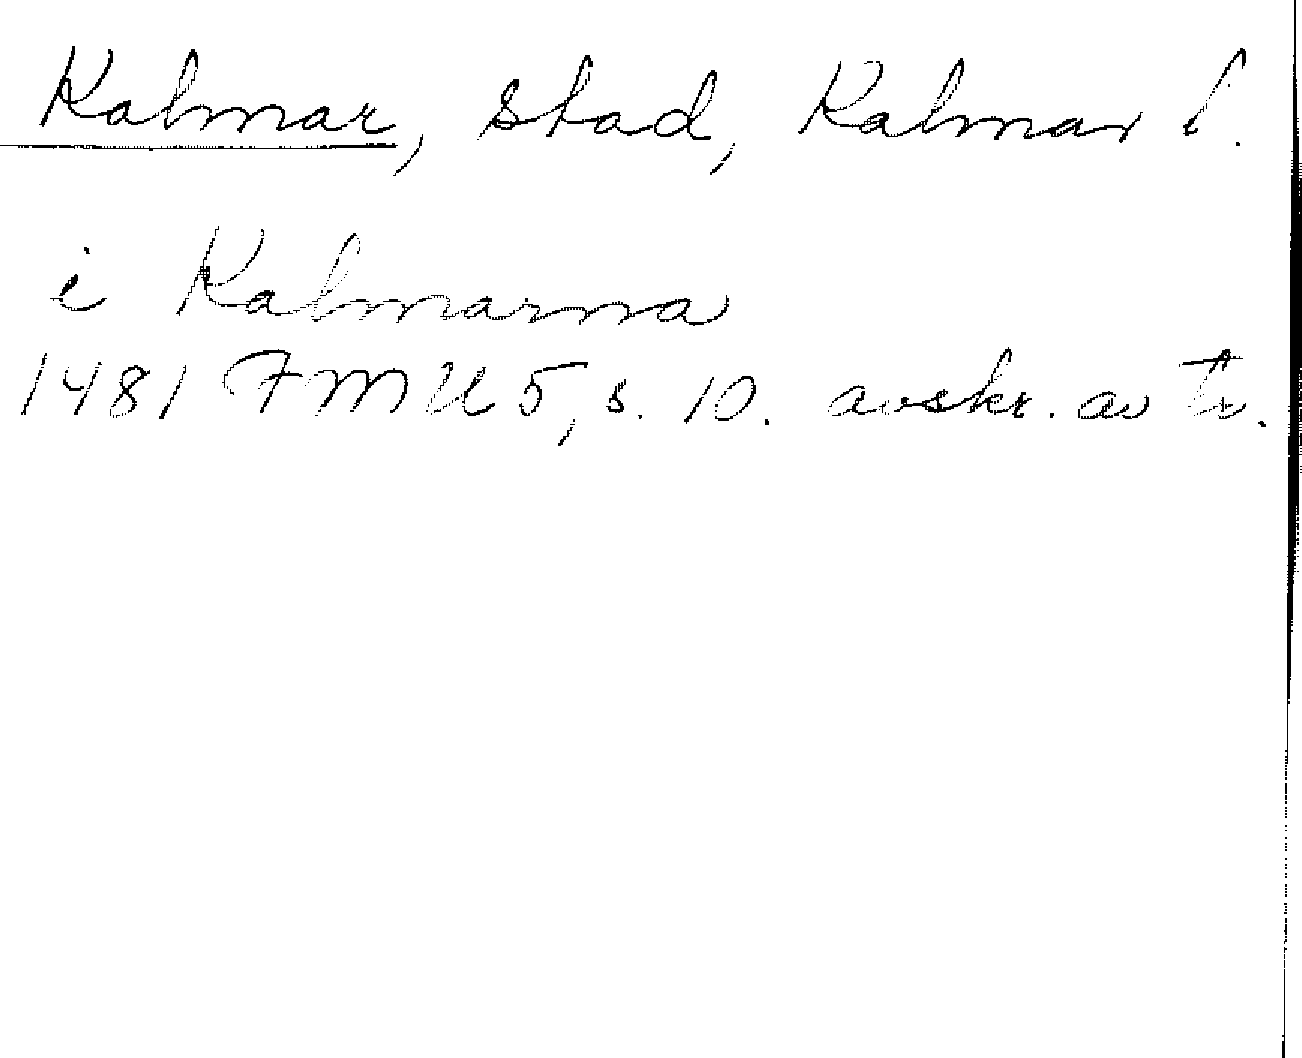 Kalmar, stad, Kalmar l.
i Kalmarna
1481 FMU 5, s. 10. avskr. av tr.